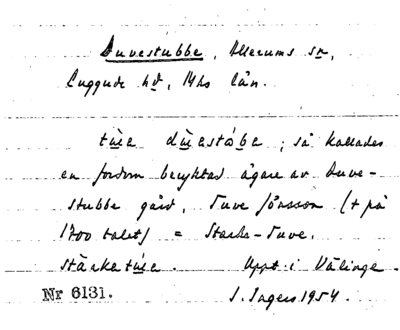 Duvestubbe, Allerums sn,
Luggude hd, Mhs län.
tùe dùestòbe; så kallades
en fordom beryktad ägare av Duve-
stubbe gård, Tuve Jönsson (+ på
1700 talet) = Starke-Tuve.
stàrketùe. Uppt. i Välinge.
Nr 6131.
I. Ingers 1954.